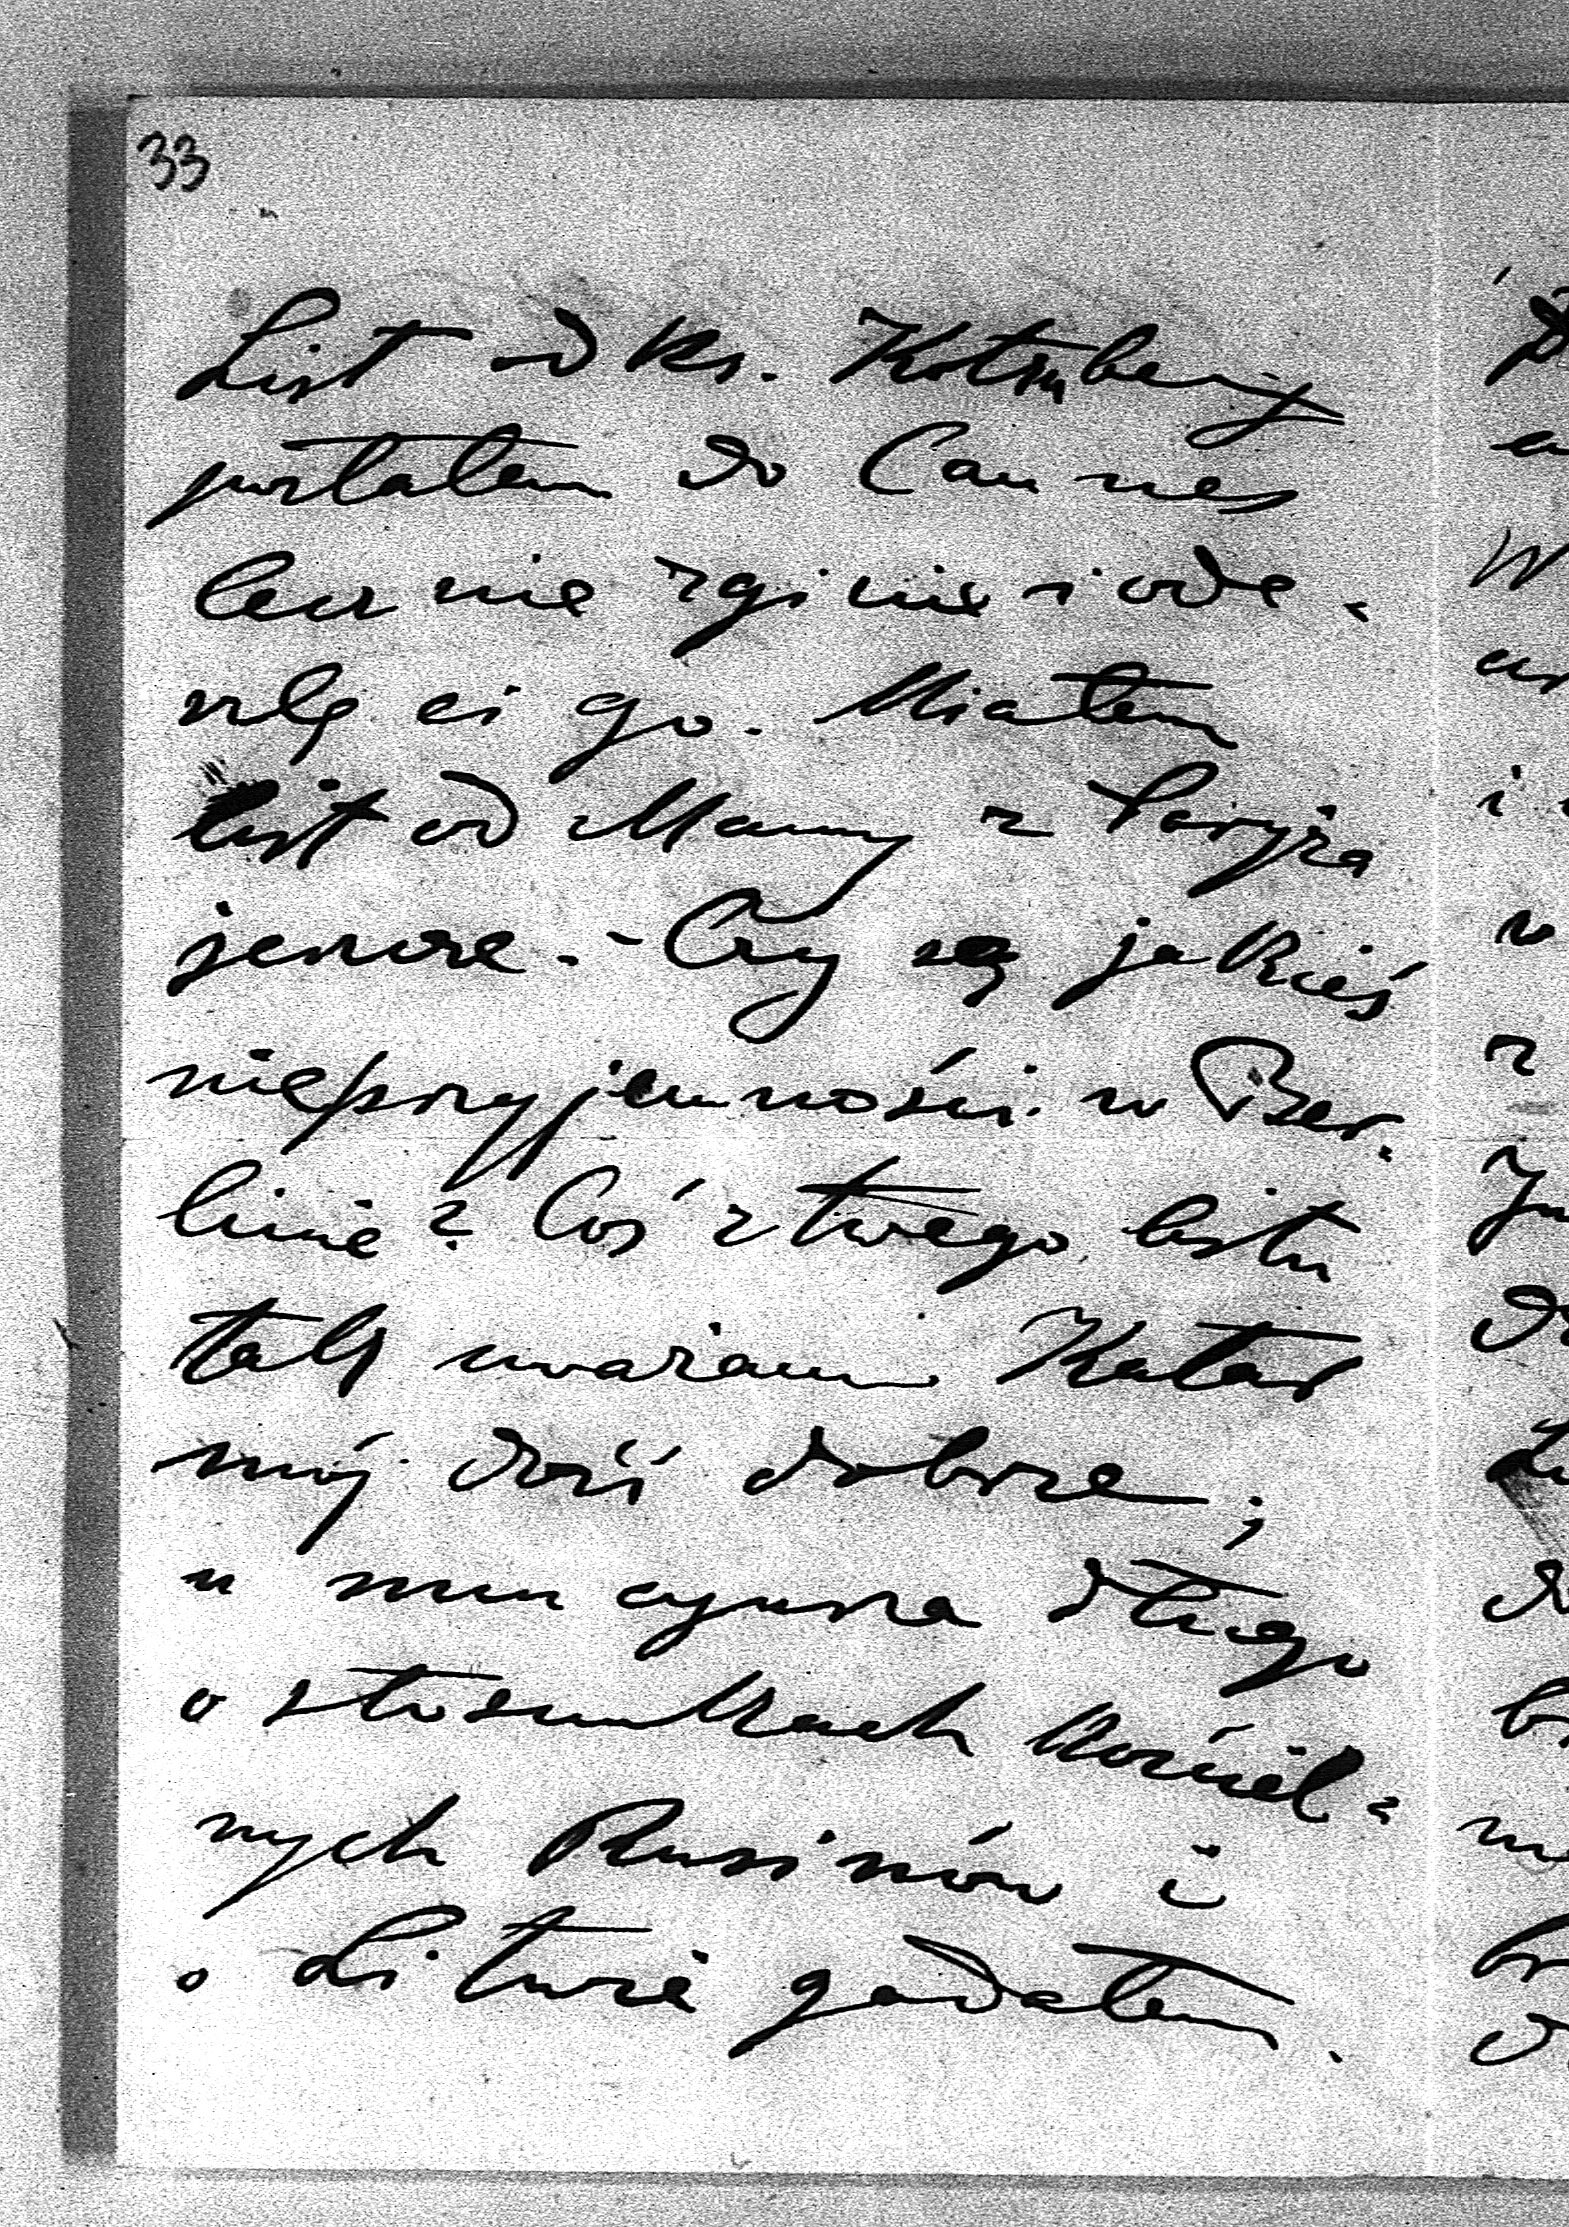 33
List od ks. Kotruberg
posłałem do Cannes
lecz nie zginie i ode-
szlę ci go. Miałem
list od Mamy z Paryża
jeszcze. - Czy są jakieś
nieprzyjemności w Ber-
linie? Coś z twego listu
tak uważam Katar
mój dziś dobrze;
u nuncyusza długo
o stosunkach kościel-
nych Rusinów i
o Litwie gadałem.